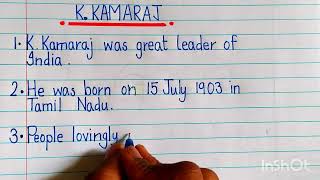 K.KAMARAJ
1. K. Kamaraj was great leader of
India.
2. He was born on 15 July 1903 in
Tamil Nadu.
3. People lovingly
InShOt